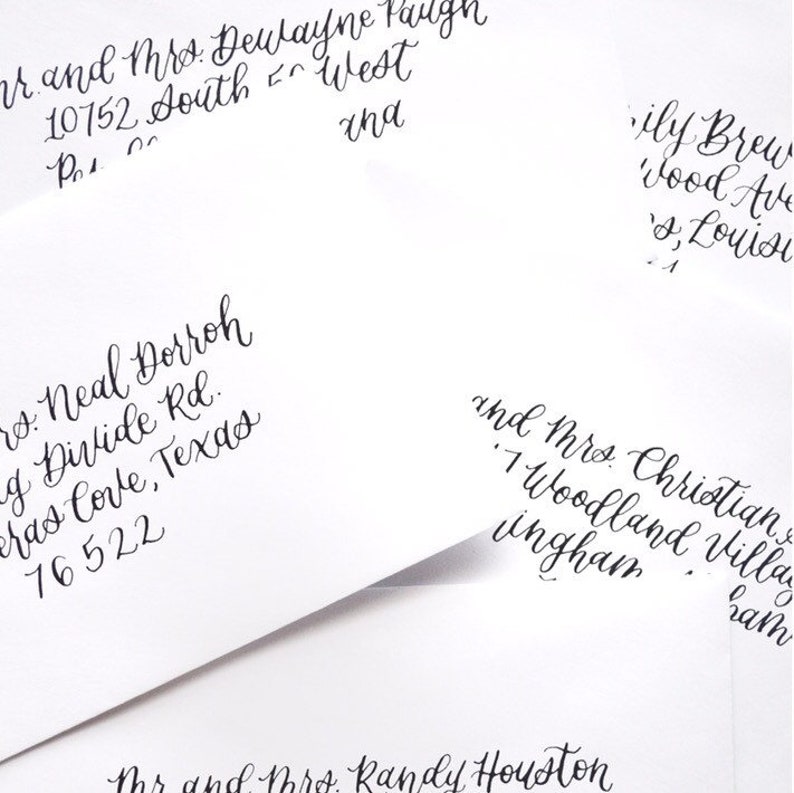 and Mrs. Dewayne Paugh
10752 South West
Brew
wood Ave
Louisi
Mrs. Neal Dorroh
Divide Rd.
Cove, Texas
76522
and Mrs. Christian
Woodland Villag
ingham
ham
Mr. and Mrs. Randy Houston